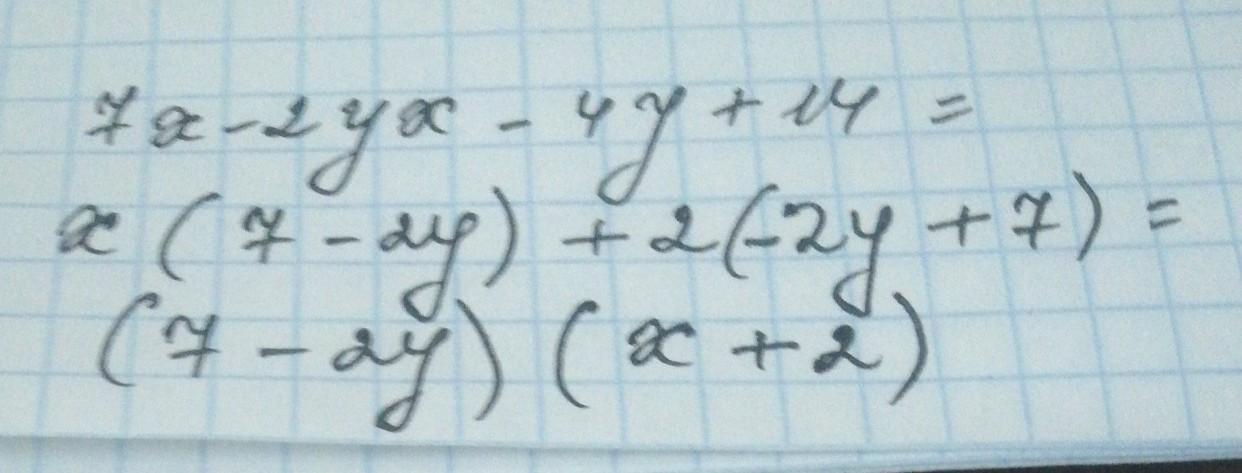 7x - 2yx - 4y + 14 =
x (7 - 2y) + 2(-2y + 7) =
(7 - 2y) (x + 2)